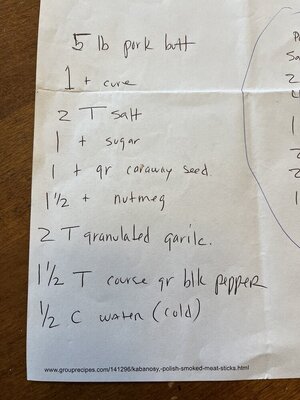 5 lb pork butt
1 t cure
2 T salt
1 t sugar
1 t gr caraway seed.
1 1/2 t nutmeg
2 T granulated garlic.
1 1/2 T course gr blk pepper
1/2 C water (cold)
www.grouprecipes.com/141296/kabanosy,-polish-smoked-meat-sticks.html